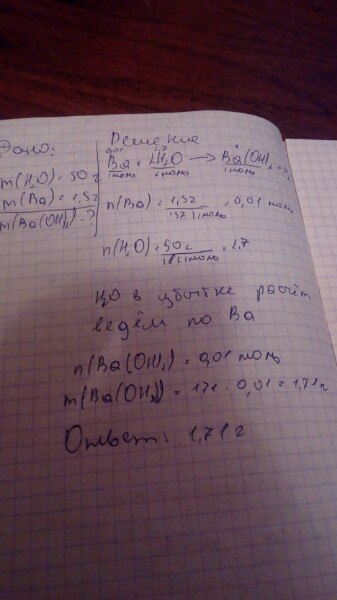 Дано:
m(H₂O) = 50г
m(Ba) = 1,5г
m(Ba(OH)₂) - ?
Решение
0,01 2,7 x
Ba + 2H₂O → Ba(OH)₂ + H₂
1моль 2моль 1моль
n(Ba) = 1,5г / 137 г/моль = 0,01 моль
n(H₂O) = 50г / 18 г/моль = 2,7
H₂O в избытке расчёт
ведём по Ba
n(Ba(OH)₂) = 0,01 моль
m(Ba(OH)₂) = 171 · 0,01 = 1,71г
Ответ: 1,71г